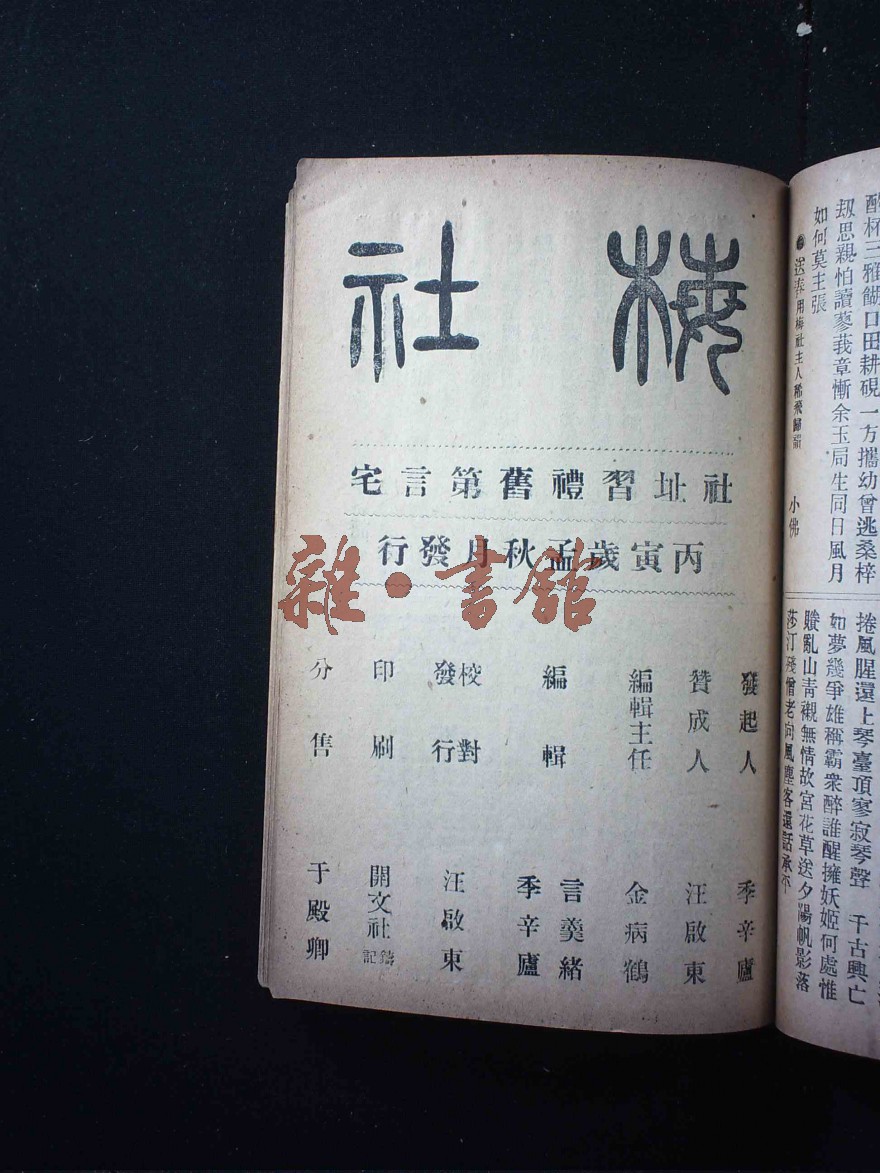 梅社
社址習禮舊第言宅
丙寅歲孟秋月發行
雜·書館
發起人 季辛廬
贊成人 汪啟東
編輯主任 金病鶴
編輯 言羹緒 季辛廬
校對發行 汪啟東
印刷 開文社鑄記
分售 于殿卿
杯三雅餬口田耕硯一方攜幼曾逃桑梓
刼思親怕讀蓼莪章慚余玉局生同日風月
如何莫主張
●送春用梅社主人稀飛歸韻 小佛
捲風腥還上琴臺頂寥寂琴聲 千古興亡
如夢幾爭雄稱霸衆醉誰醒擁妖姬何處惟
賸亂山青襯無情故宮花草送夕陽帆影落
莎汀殘僧老向風塵客還話承平